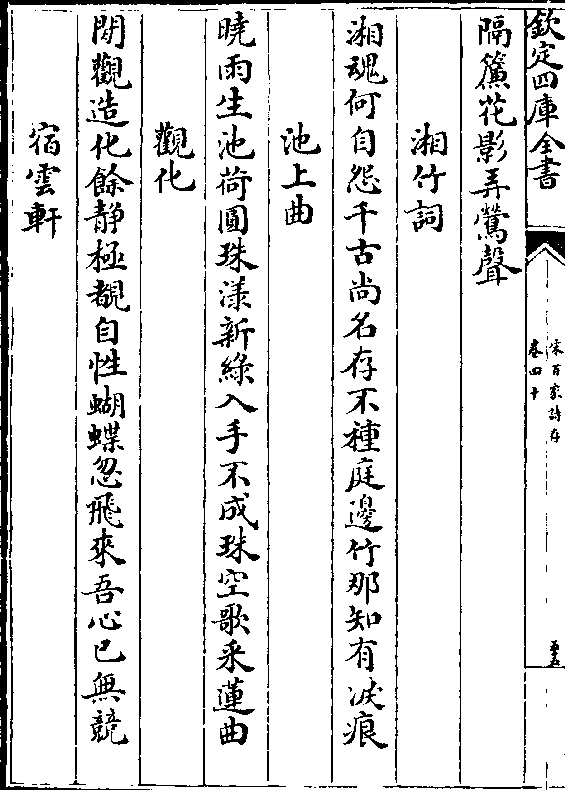 欽定四庫全書
宋百家詩存
卷四十
隔簾花影弄鶯聲
湘竹詞
湘魂何自怨千古尚名存不種庭邊竹那知有淚痕
池上曲
曉雨生池荷圓珠漾新綠入手不成珠空歌采蓮曲
觀化
閒觀造化餘靜極覩自性蝴蝶忽飛來吾心已無競
宿雲軒